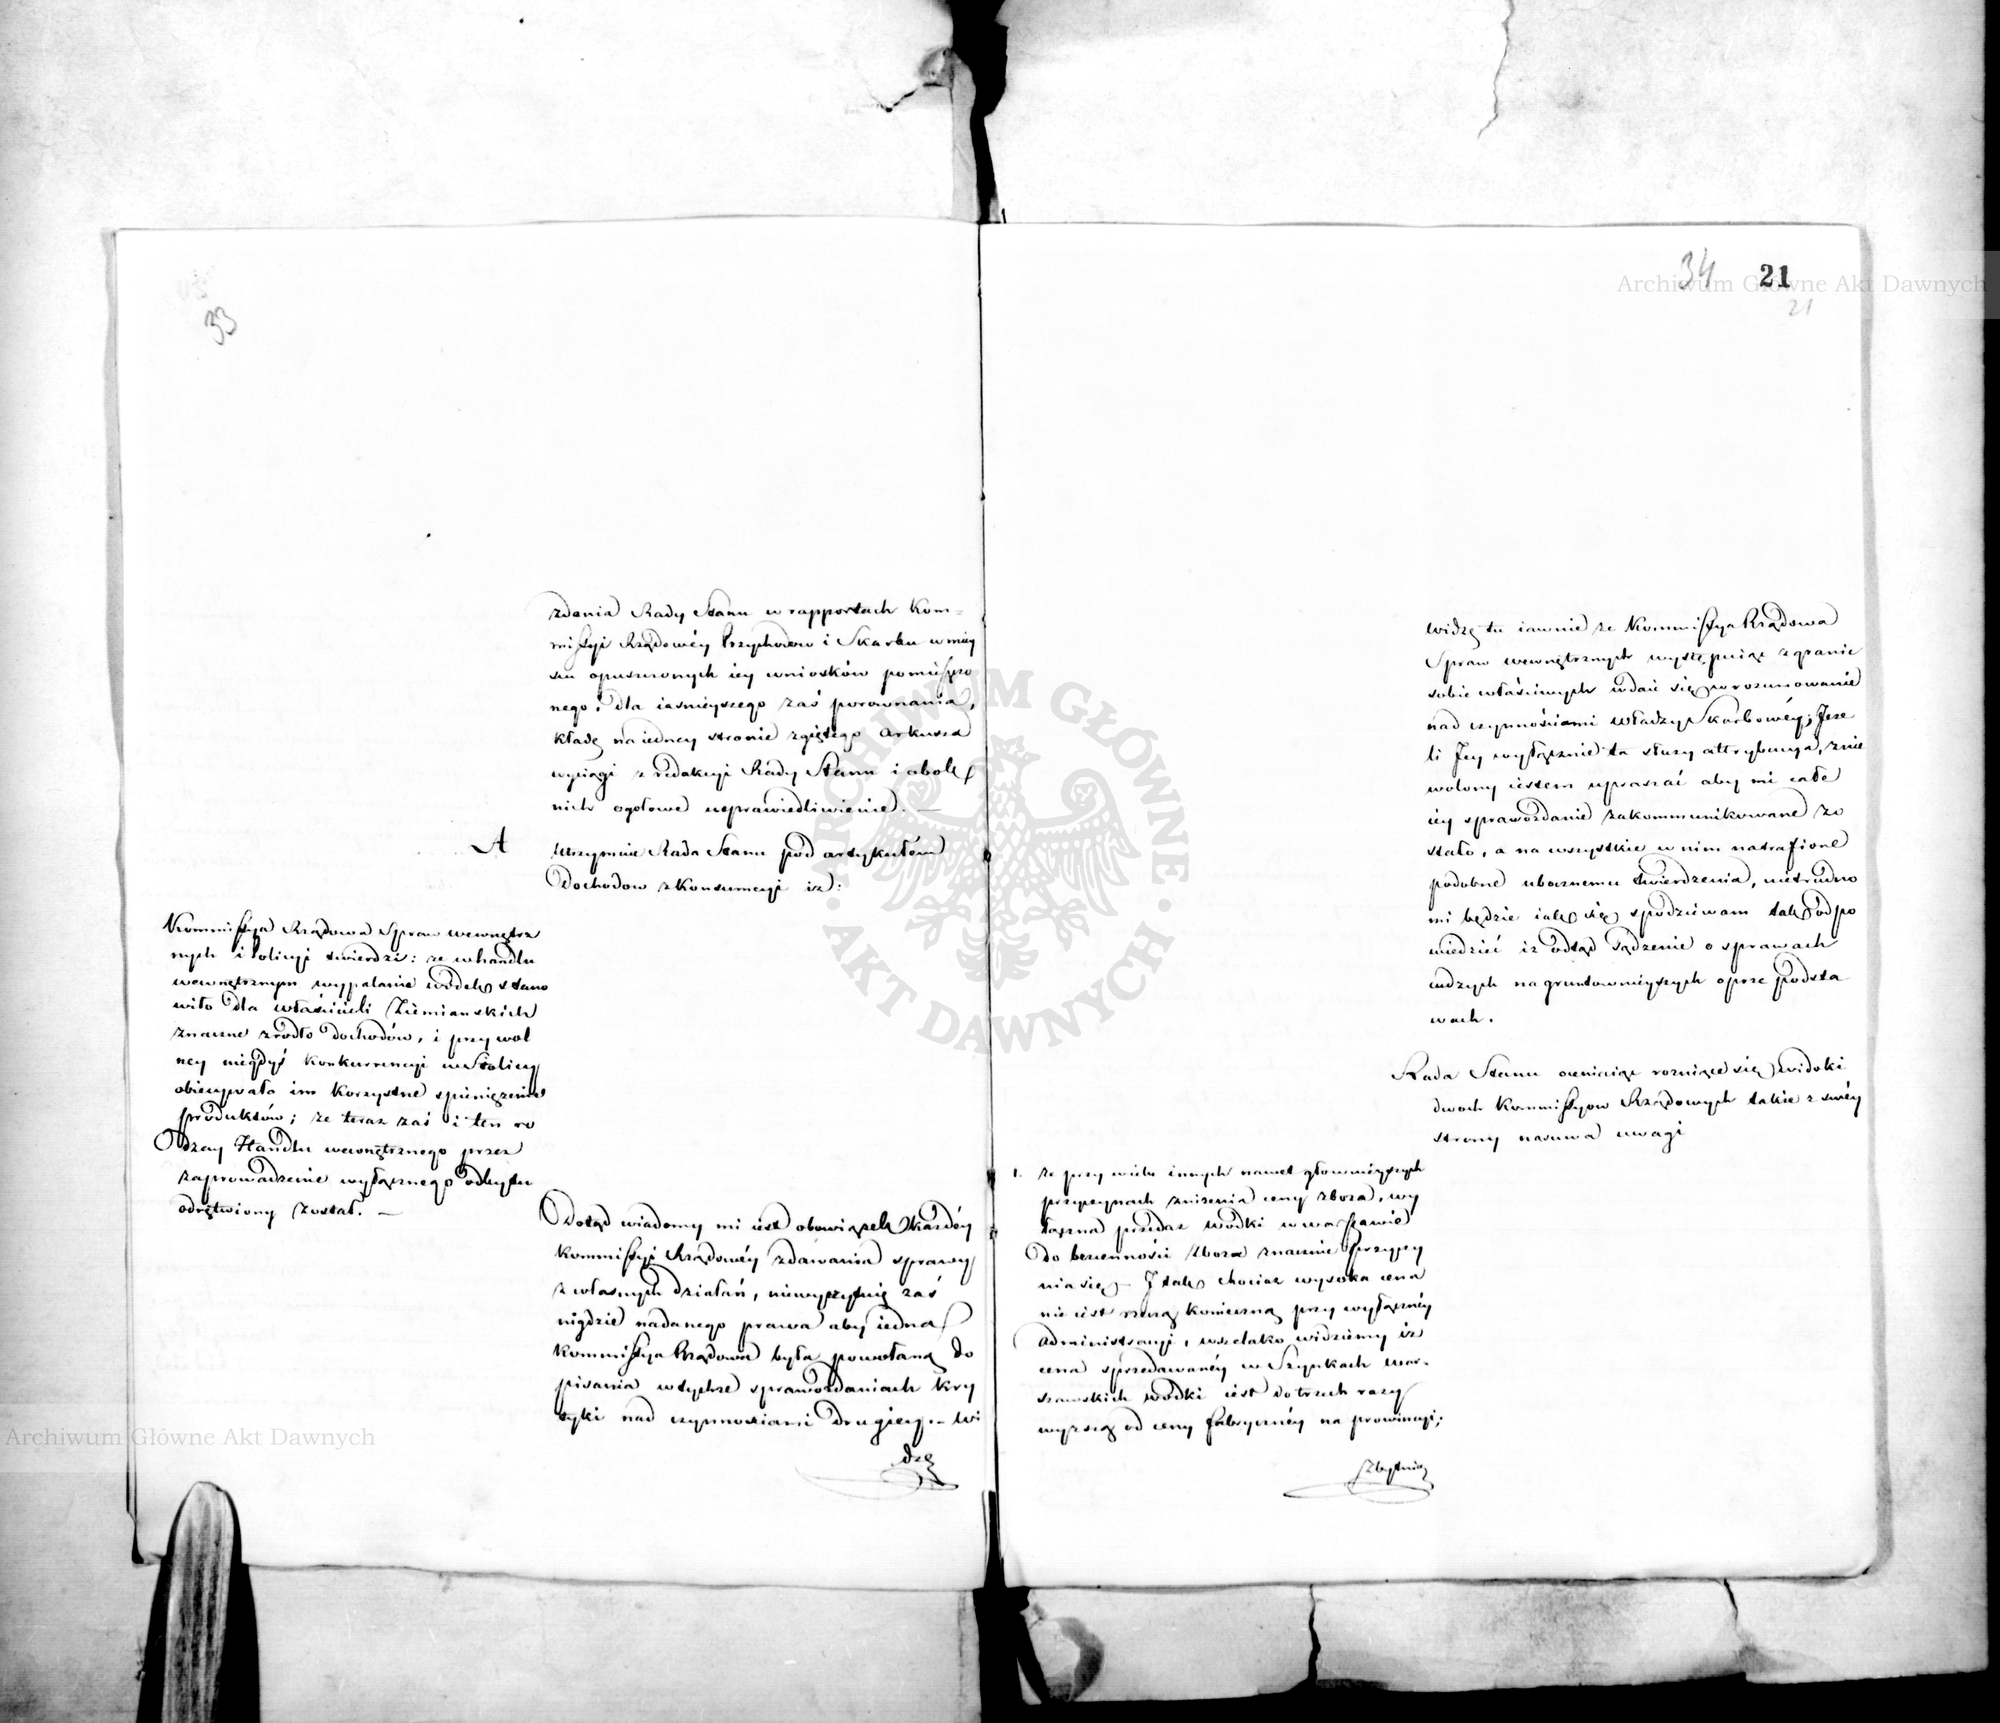 33
zdania Rady Stanu w rapportach Kom-
missyi Rządowéy Przychodow i Skarbu w miey
scu opuszczonych iey wniosków pomieszczo
nego; dla iaśnieyszego zaś porównania,
kładę na iedney stronie zgiętego Arkusza
wyciągi z redakcyi Rady Stanu i obok
nich ogołowe usprawiedliwienie. —
A
Utrzymuie Rada Stanu pod artykułem
Dochodow z Konsumcyi iż:
Kommissya Rządowa Spraw wewnętrz
nych i Policyi twierdzi: że w handlu
wewnętrznym wypalanie wódek stano
wiło dla właścicieli Ziemianskich
znaczne zrodło dochodów, i przy wol
ney niegdyś konkurrencyi w Stolicy
obiecywało im korzystne spieniężenie
produktów; że teraz zaś i ten ro
dzay Handlu wewnętrznego przez
zaprowadzenie wyłącznego odbytu
odrętwiony został. —
Dotąd wiadomy mi iest obowiązek każdéy
Kommissyi Rządowéy zdawania sprawy
z własnych działań, niewyczytuię zaś
nigdzie nadanego prawa aby iedna
Kommissya Rządowa była powołaną do
pisania w tychże sprawozdaniach kry
tyki nad czynnosciami drugiey. — Wi
dzę
34 21
21
widzę tu iawnie że Kommissya Rządowa
Spraw wewnętrznych występuiąc z granic
sobie właściwych wdaie się w rozumowanie
nad czynnościami władzy Skarbowéy; Jeże
li Jey wyłącznie ta służy attrybucya, znie
wolony iestem upraszać aby mi całe
iey sprawozdanie zakommunikowane zo
stało, a na wszystkie w nim natrafione
podobne ubocznemu twierdzenia, nietrudno
mi będzie iak się spodziewam tak odpo
wiedzieć iż odtąd sądzenie o sprawach
cudzych na gruntownieyszych oprze podsta
wach.
Rada Stanu oceniaiąc rozniące się widoki
dwoch Kommissyow Rządowych takie z swéy
strony nasuwa uwagi
1. że przy wielu innych nawet głownieyszych
przyczynach zniżenia ceny zboża, wy
łączna przedaż wódki w Warszawie
do bezcenności zboża znacznie przyczy
nia się — I tak chociaż wysoka cena
nie iest rzeczą konieczną przy wyłącznéy
administracyi, wszelako widziemy iż
cena sprzedawanéy w Szynkach War-
szawskich wódki iest do trzech razy
wyższą od ceny fabrycznéy na prowincyi;
Zbytnia
ARCHIWUM GŁÓWNE AKT DAWNYCH
Archiwum Główne Akt Dawnych
Archiwum Główne Akt Dawnych